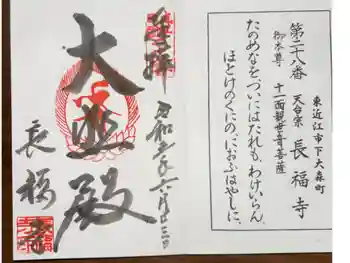 奉拝
大悲殿
令和五年六月十三日
長福寺
東近江市下大森町
第二十八番 天台宗 長福寺
御本尊 十一面観世音菩薩
たのめなを、ついにはたれも、わけいらん、
ほとけのくにの、におふはやしに、